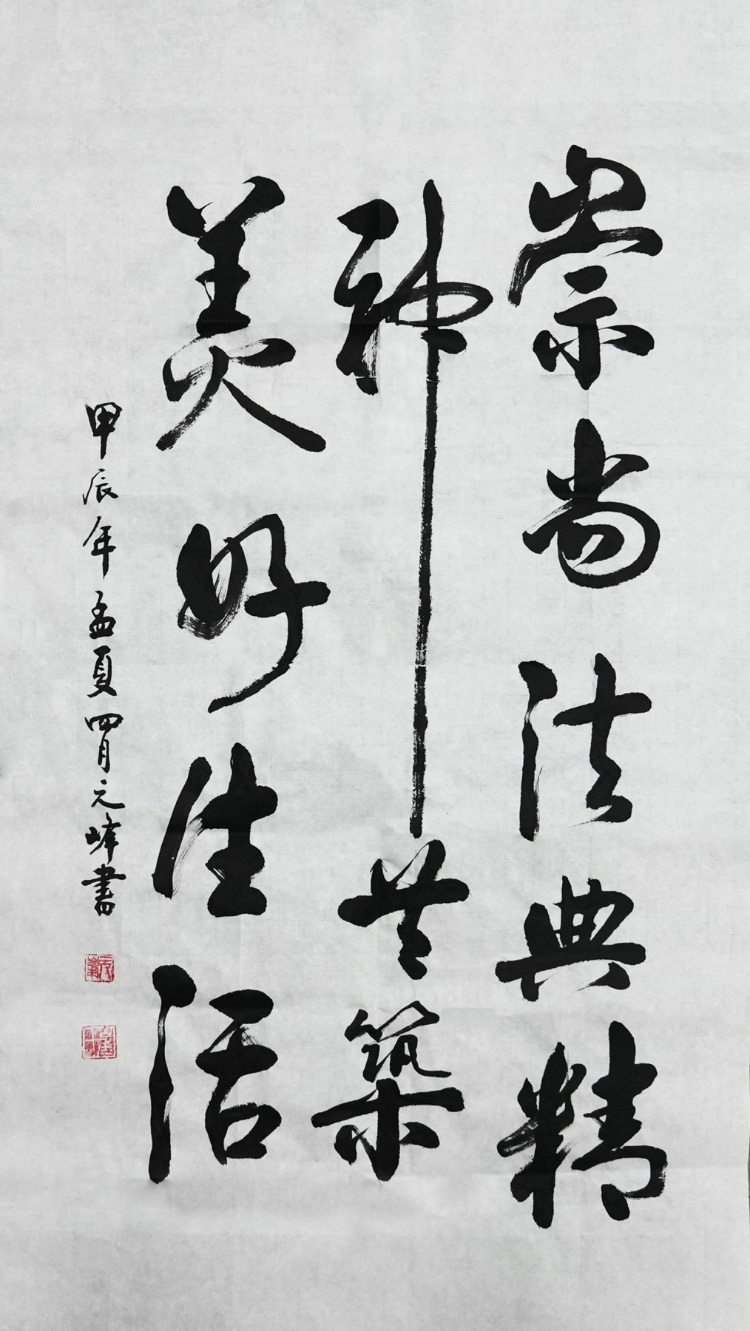 崇尚法典精
神共築
美好生活
甲辰年孟夏四月元峰書